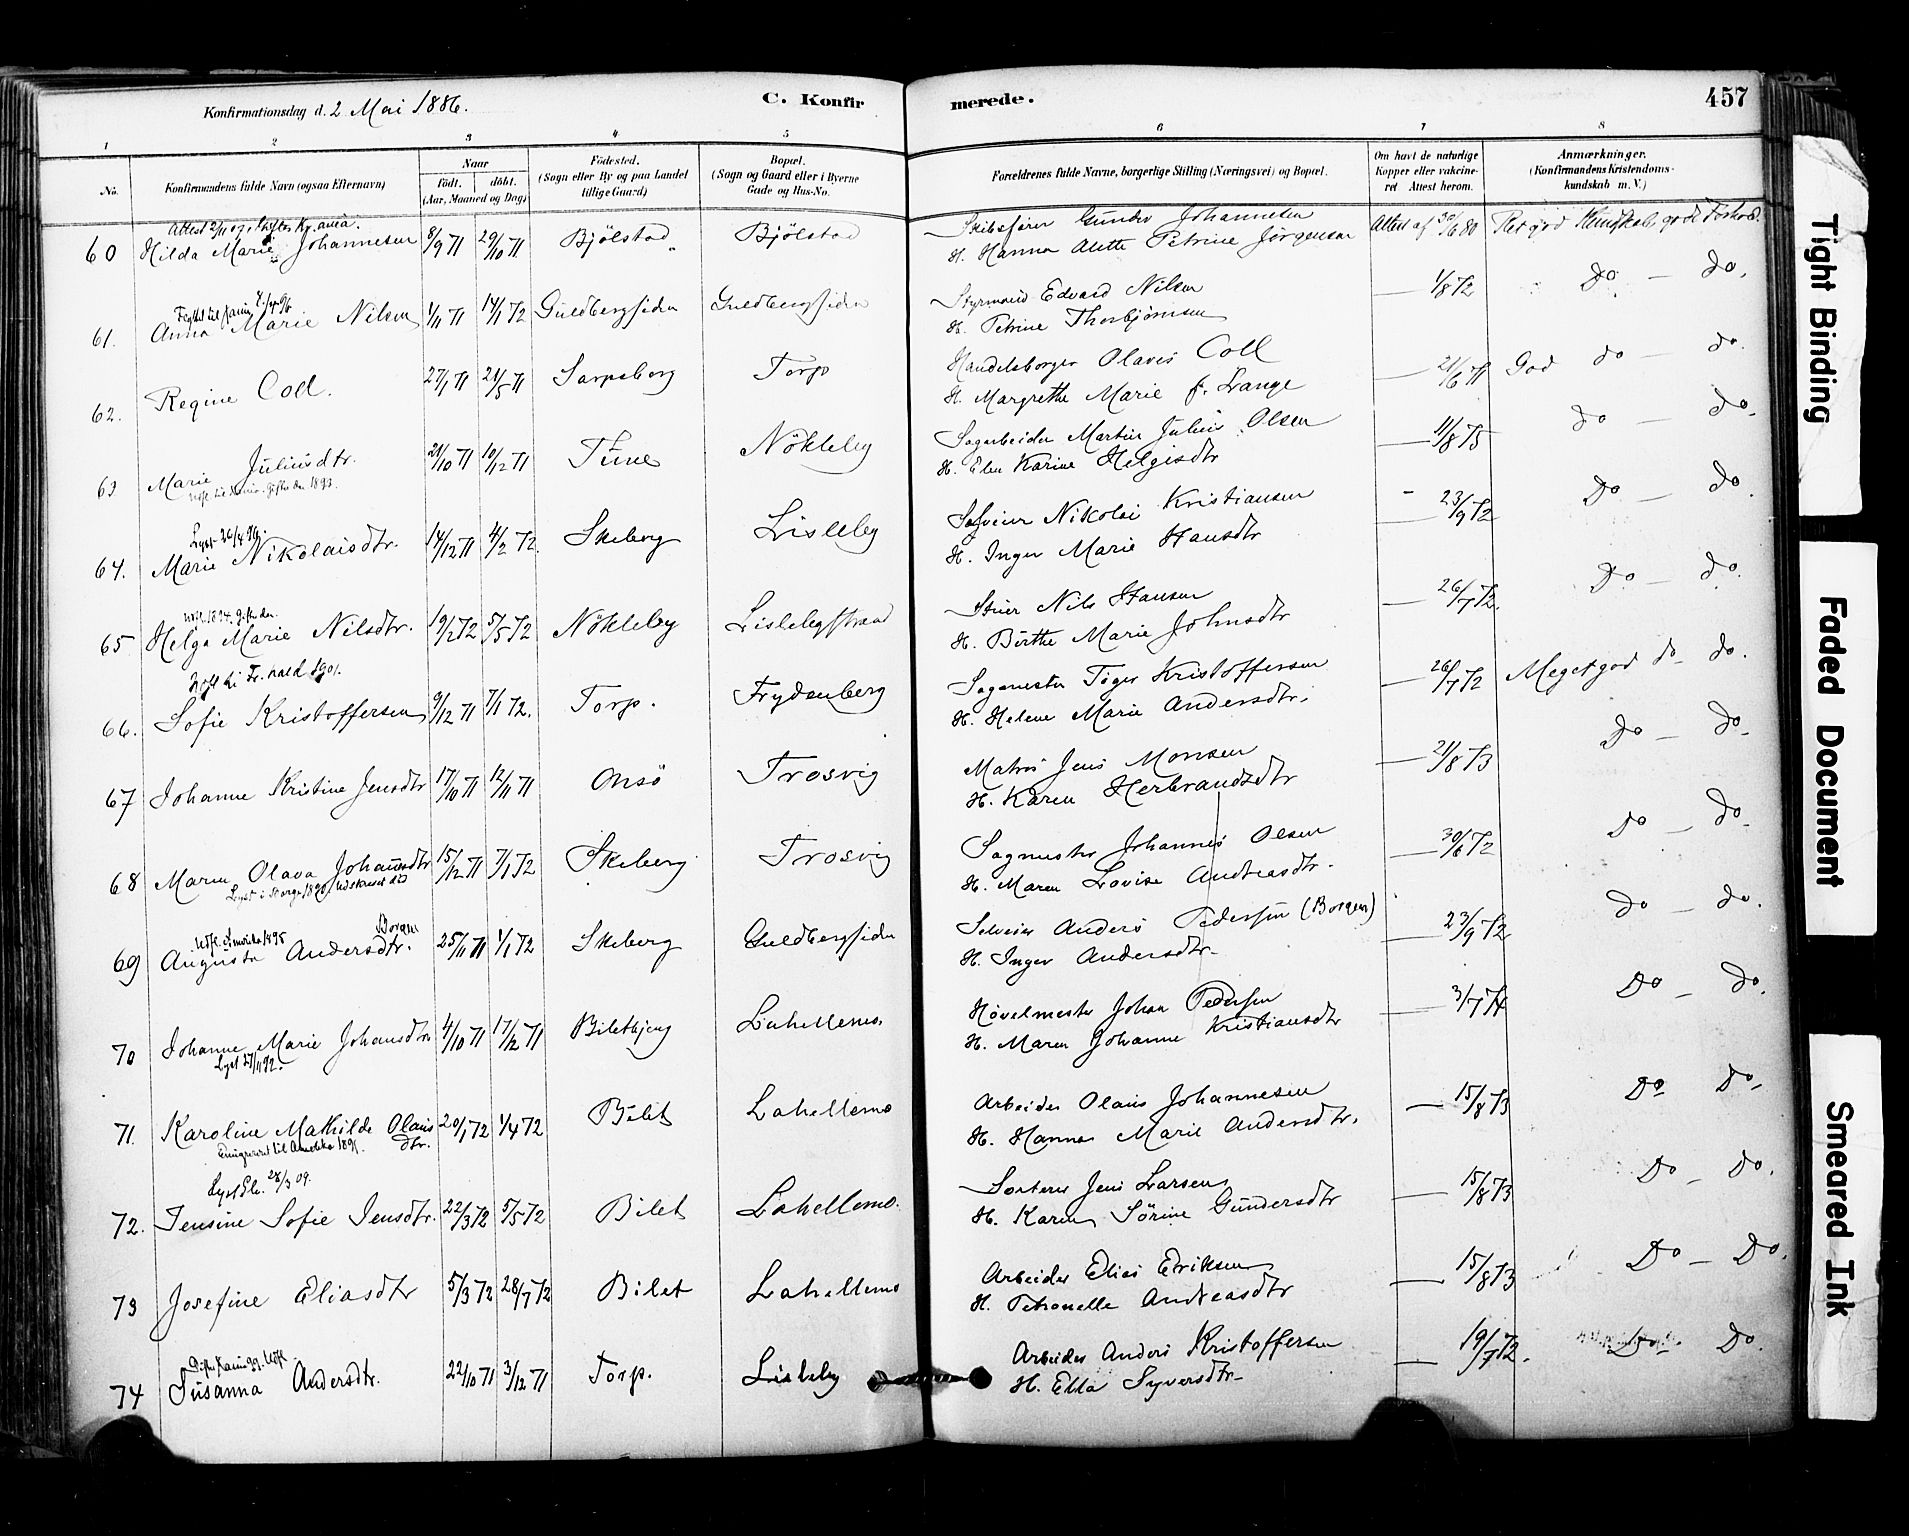 Konfirmationsdag d. 2 Mai 1886.
C. Konfirmerede.
457
1 2 3 4 5 6 7 8
No.
Konfirmandens fulde Navn (ogsaa Efternavn)
Naar
født. døbt.
(Aar, Maaned og Dag)
Fødested.
(Sogn eller By og paa Landet
tillige Gaard)
Bopæl.
(Sogn og Gaard eller i Byerne
Gade og Hus-No.
Forældrenes fulde Navne, borgerlige Stilling (Næringsvei) og Bopæl.
Om havt de naturlige
Kopper eller vakcine-
ret Attest herom.
Anmærkninger.
(Konfirmandens Kristendoms-
kundskab m. V.)
60 Hilda Marie Johannesen 8/9 71 29/10 71 Bjölstad Bjölstad Skibsfører Gunder Johannesen Attest af 30/6 80 Ret god Kundskab, godt Forhold.
H. Hanna Alette Petrine Jörgensen
61. Anna Marie Nilsen 1/11 71 14/1 72 Guldbergsiden Guldbergsiden Styrmand Edvard Nilsen — 1/8 72 Do — do.
H. Petrine Thorbjörnsen
62. Regine Coll. 27/1 71 21/5 71 Sarpsborg Torp Handelsborger Olaves Coll — 21/6 71 God do — do.
H. Margrethe Marie f. Lange
63 Marie Juliusdtr. 21/10 71 10/12 71 Tune Nökleby Sagarbeider Martin Julius Olsen — 11/8 75 do — do.
H. Elen Karine Helgesdtr
64. Marie Nikolaisdtr. 14/12 71 4/2 72. Skeberg Lisleby Nikolai Kristiansen — 23/9 72 Do — do.
Lyst 26/4 96.
H. Inger Marie Hansdtr
65 Helga Marie Nilsdtr. 19/2 72 5/5 72 Nökleby Lislebystrand Nils Hansen — 26/7 72. Do — do.
H. Birthe Marie Johnsdtr
66. Sofie Kristoffersen 9/12 71 7/1 72. Torp. Frydenberg Sagmester Töger Kristoffersen — 26/7 72 Meget god do — do.
H. Helene Marie Andersdtr.
67 Johanne Kristine Jensdtr 17/10 71 12/11 71 Onsö Trosvig Matros Jens Monsen — 21/8 73 Do — do.
H. Karen Herbrandsdtr
68 Maren Olava Johannsdtr 15/12 71 7/1 72 Skeberg Trosvig Sagmester Johannes Olsen — 30/6 72 Do — do.
H. Maren Lovise Andreasdtr.
69 Augusta Andersdtr. Borgen 25/11 71 1/1 72 Skeberg Guldbergsiden Anders Pedersen (Borgen) — 23/9 72 Do — do.
Udfl. t. Amerika 1895
H. Inger Andersdtr.
70 Johanne Marie Johansdtr 4/10 71 17/12 71 Biletbjerg Lahellemo. Høvelmester Johan Pedersen — 3/7 74 Do — do.
H. Maren Johanne Kristiansdtr
71. Karoline Mathilde Olausdtr. 20/1 72 1/4 72 Bilet Lahellemo Arbeider Olaus Johannesen — 15/8 73 Do — Do.
H. Hanna Marie Andersdtr.
Emigreret til Amerika
72. Jensine Sofie Jensdtr. 22/3 72 5/5 72 Bilet Lahellemo. Sorterer Jens Larsen — 15/8 73 Do — Do.
H. Karen Sörine Gundersdtr
73 Josefine Eliasdtr 5/3 72 28/7 72 Bilet Lahellemo Arbeider Elias Eriksen — 15/8 73 Do — Do.
H. Petronelle Andreasdtr
74 Susanna Andersdtr. 22/10 71 3/12 71 Torp. Lisleby Arbeider Anders Kristoffersen — 19/7 72. Do — Do.
H. Ella Syversdtr.
Tight Binding
Faded Document
Smeared Ink